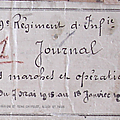 9e Régiment d'Infie
Journal
s marches et opératio
Du 7 Mai 1918 au 1er Janvier 19